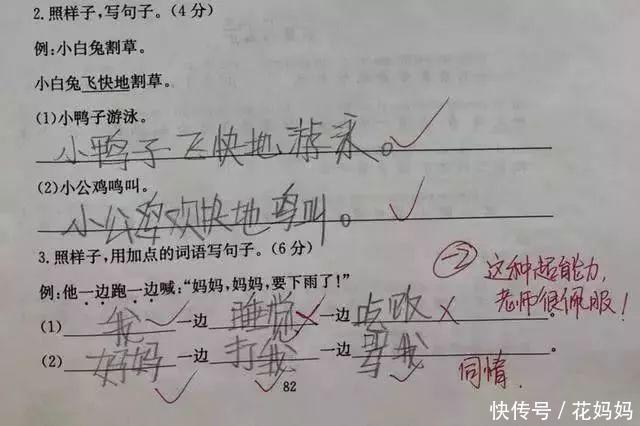 2.照样子，写句子。（4分）
例：小白兔割草。
小白兔飞快地割草。
(1)小鸭子游泳。
小鸭子飞快地游泳。
(2)小公鸡鸣叫。
小公鸡欢快地鸣叫。
3.照样子，用加点的词语写句子。（6分）
例：他一边跑一边喊：“妈妈，妈妈，要下雨了！”
(1) 我 一边 睡觉 一边 走路 。
(2) 妈妈 一边 打我 一边 骂我 。
-2 这种超能力，
老师很佩服！
同情.
82
快传号/花妈妈